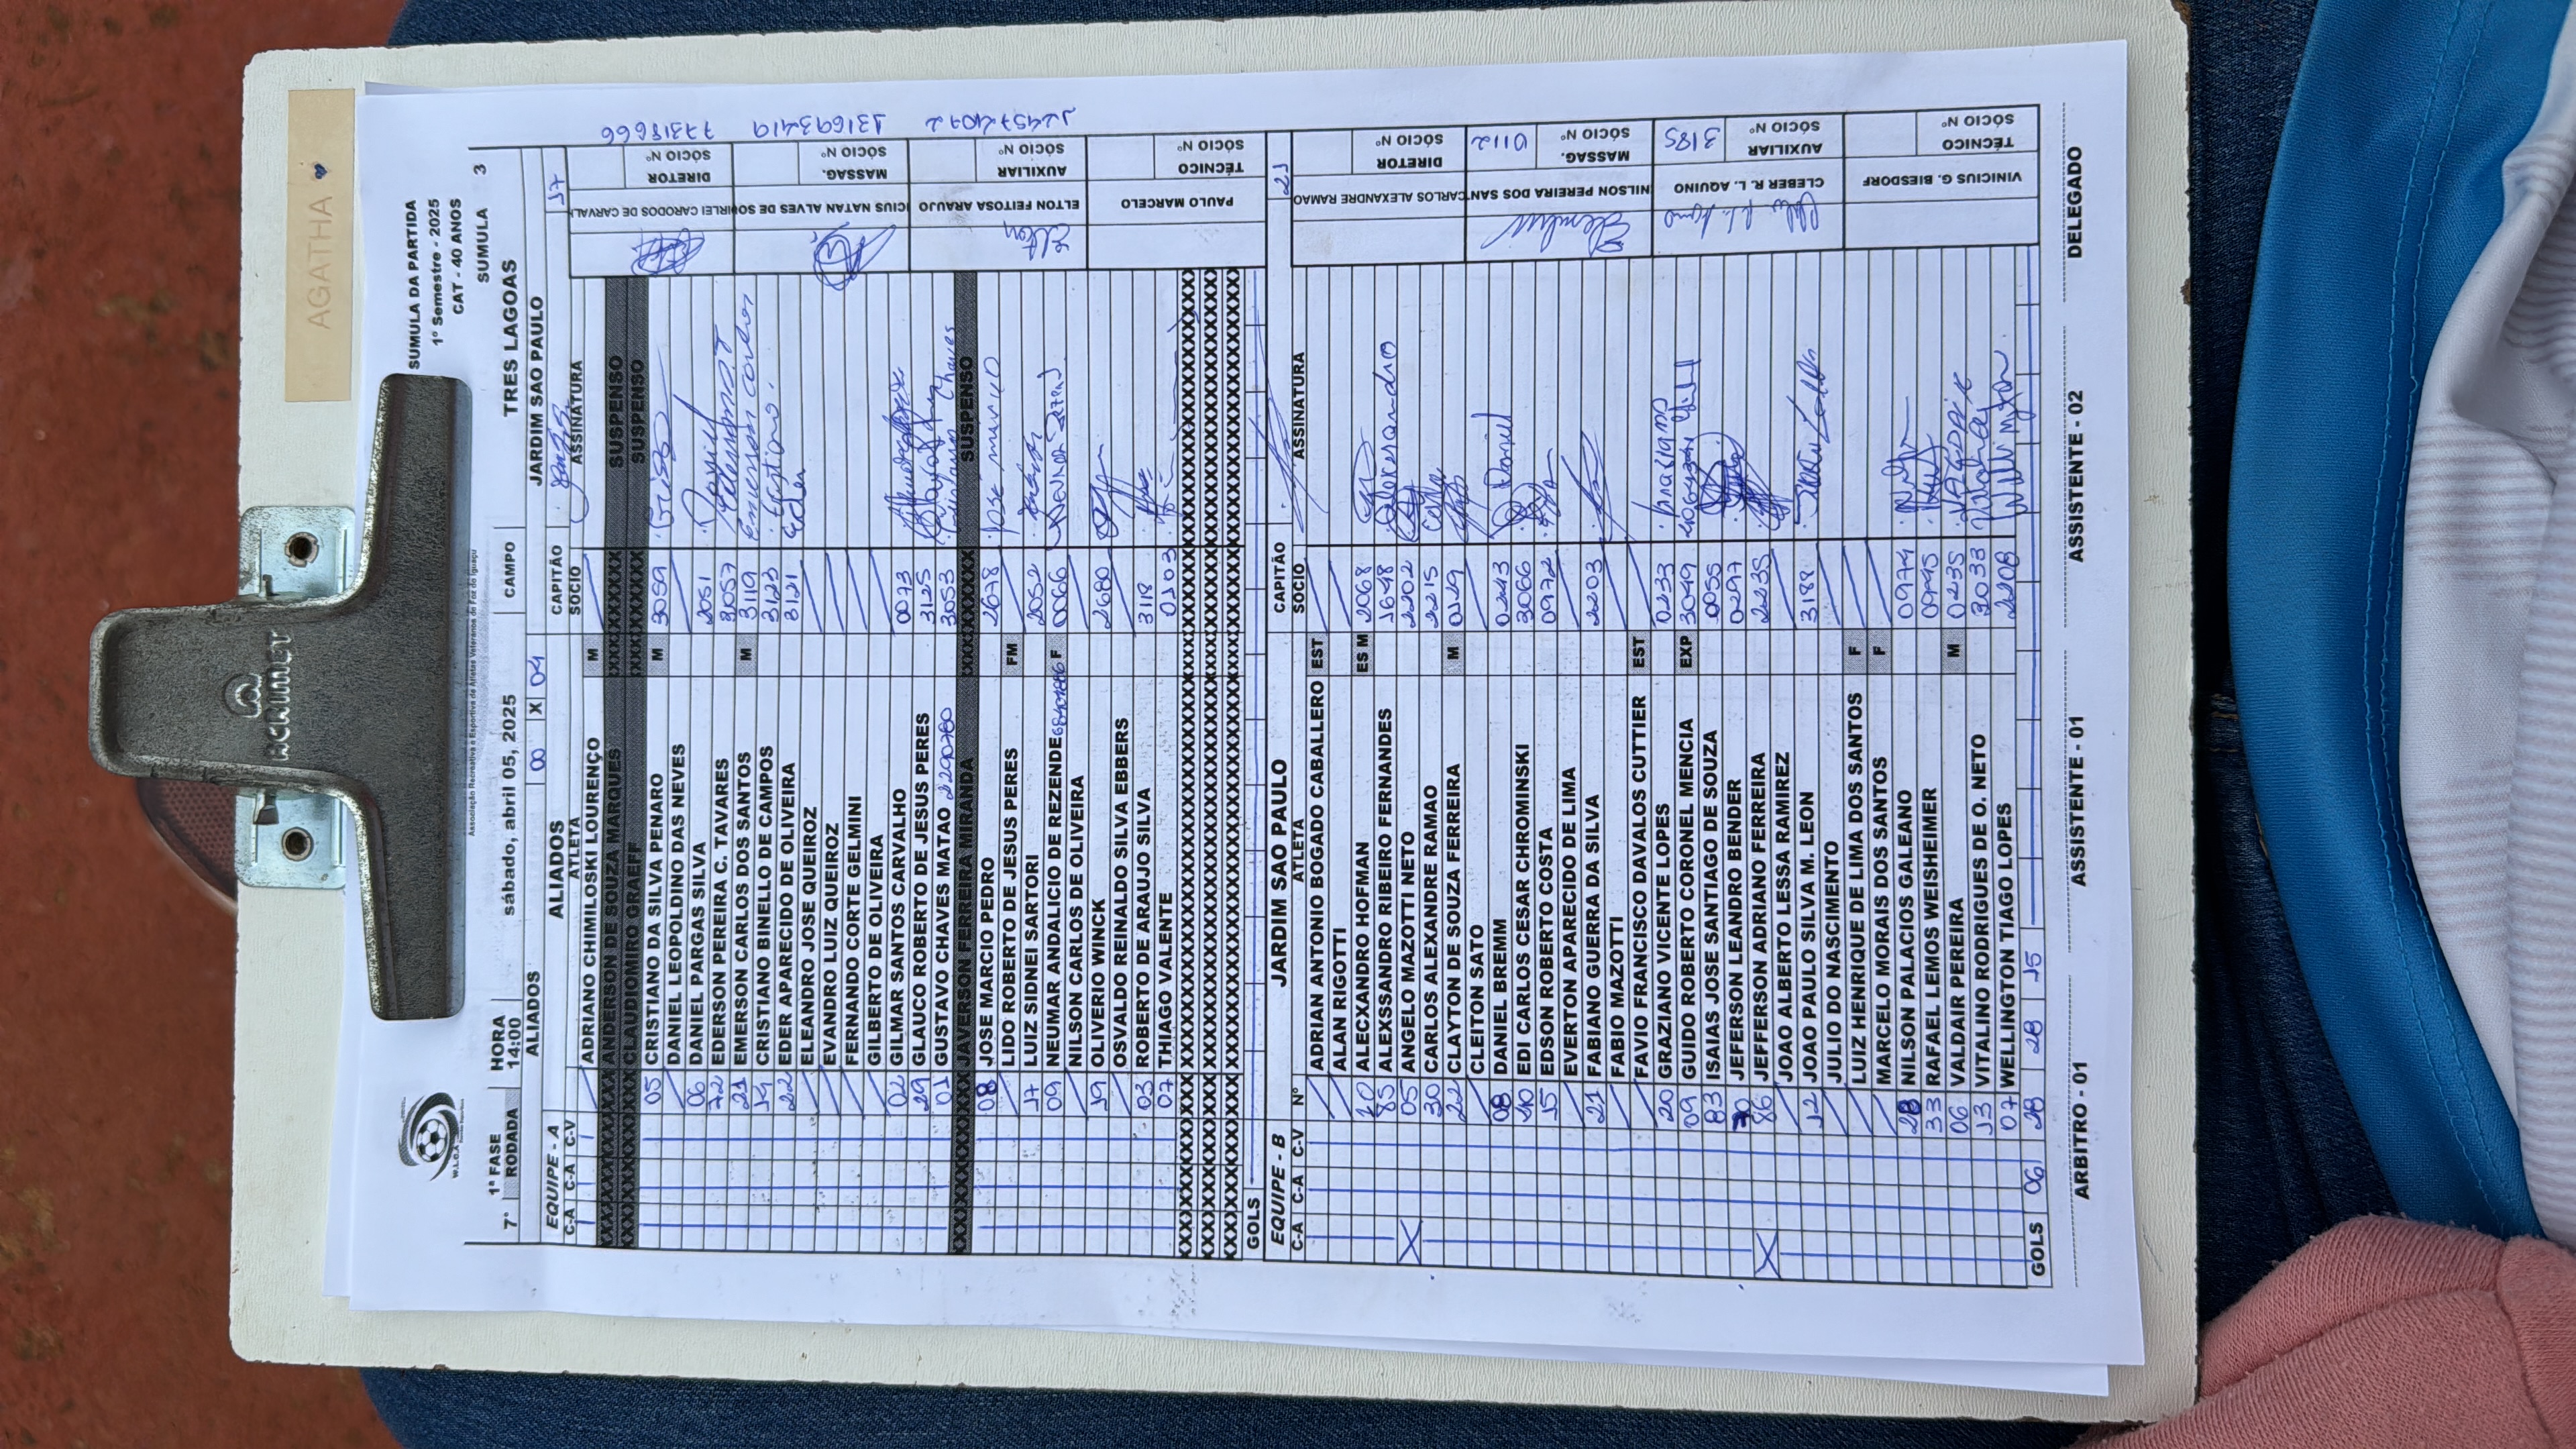 AGATHA
acrimet
SUMULA DA PARTIDA
1º Semestre - 2025
CAT - 40 ANOS
W.L.O.A
Associação Recreativa e Esportiva de Atletas Veteranos de Foz do Iguaçu
1ª FASE HORA SUMULA 3
7ª RODADA 14:00 sábado, abril 05, 2025 CAMPO TRES LAGOAS
ALIADOS 00 X 04 JARDIM SAO PAULO
EQUIPE - A ALIADOS CAPITÃO 17
C-A C-A C-A C-V ATLETA SOCIO ASSINATURA
ADRIANO CHIMILOSKI LOURENÇO M
ANDERSON DE SOUZA MARQUES SUSPENSO
CLAUDIOMIRO GRAEFF SUSPENSO
05 CRISTIANO DA SILVA PENARO M 3059
DANIEL LEOPOLDINO DAS NEVES
06 DANIEL PARGAS SILVA 2051 Daniel
72 EDERSON PEREIRA C. TAVARES 3057
21 EMERSON CARLOS DOS SANTOS M 3119 Emerson Carlos
14 CRISTIANO BINELLO DE CAMPOS 3123 Cristiano
22 EDER APARECIDO DE OLIVEIRA 3121 Eder
ELEANDRO JOSE QUEIROZ
EVANDRO LUIZ QUEIROZ
FERNANDO CORTE GELMINI
GILBERTO DE OLIVEIRA
02 GILMAR SANTOS CARVALHO 0073
29 GLAUCO ROBERTO DE JESUS PERES 3125
01 GUSTAVO CHAVES MATAO 2290780 3053 Chaves
JAVERSON FERREIRA MIRANDA SUSPENSO
08 JOSE MARCIO PEDRO 2678 Jose Marcio
LIDO ROBERTO DE JESUS PERES FM
17 LUIZ SIDNEI SARTORI 2052
09 NEUMAR ANDALICIO DE REZENDE F 0066
NILSON CARLOS DE OLIVEIRA
19 OLIVERIO WINCK 2680
OSVALDO REINALDO SILVA EBBERS
03 ROBERTO DE ARAUJO SILVA 3118
07 THIAGO VALENTE 0103
GOLS
DIRETOR SÓCIO Nº 77318666
MASSAG. SÓCIO Nº 131693419
ICIUS NATAN ALVES DE SO
AUXILIAR SÓCIO Nº
ELTON FEITOSA ARAUJO Elton
TÉCNICO SÓCIO Nº
PAULO MARCELO
EQUIPE - B JARDIM SAO PAULO CAPITÃO
C-A C-A C-A C-V Nº ATLETA SOCIO ASSINATURA
ADRIAN ANTONIO BOGADO CABALLERO EST
ALAN RIGOTTI
10 ALECXANDRO HOFMAN ES M 2068
85 ALEXSSANDRO RIBEIRO FERNANDES 1648
X 05 ANGELO MAZOTTI NETO 2202
30 CARLOS ALEXANDRE RAMAO 2215
22 CLAYTON DE SOUZA FERREIRA M 0129
CLEITON SATO
08 DANIEL BREMM 0243 Daniel
40 EDI CARLOS CESAR CHROMINSKI 3066
15 EDSON ROBERTO COSTA 0972
EVERTON APARECIDO DE LIMA
21 FABIANO GUERRA DA SILVA 2203
FABIO MAZOTTI
FAVIO FRANCISCO DAVALOS CUTTIER EST
20 GRAZIANO VICENTE LOPES 0233
09 GUIDO ROBERTO CORONEL MENCIA EXP 3049
83 ISAIAS JOSE SANTIAGO DE SOUZA 0055
JEFERSON LEANDRO BENDER 0297
X 86 JEFFERSON ADRIANO FERREIRA 2235
JOAO ALBERTO LESSA RAMIREZ
12 JOAO PAULO SILVA M. LEON 3188
JULIO DO NASCIMENTO
LUIZ HENRIQUE DE LIMA DOS SANTOS F
MARCELO MORAIS DOS SANTOS F
28 NILSON PALACIOS GALEANO 0974
33 RAFAEL LEMOS WEISHEIMER 0945
06 VALDAIR PEREIRA M 0235
13 VITALINO RODRIGUES DE O. NETO 3033
07 WELLINGTON TIAGO LOPES 2208
GOLS 06 28 28 15
DIRETOR SÓCIO Nº
CARLOS ALEXANDRE RAMAO
MASSAG. SÓCIO Nº 0112
NILSON PEREIRA DOS SANT
AUXILIAR SÓCIO Nº 3185
CLEBER R. L. AQUINO
TÉCNICO SÓCIO Nº
VINICIUS G. BIESDORF
ARBITRO - 01 ASSISTENTE - 01 ASSISTENTE - 02 DELEGADO